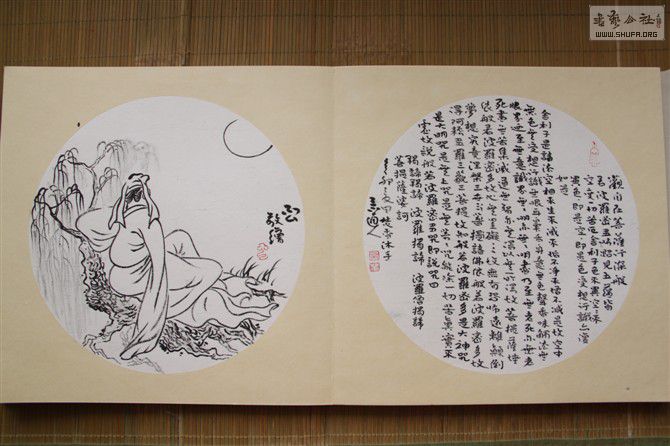 觀自在菩薩行深般
若波羅蜜多時照見五蘊皆
空度一切苦厄舍利子色不異空空不
異色色即是空空即是色受想行識亦復
如是
舍利子是諸法空相不生不滅不垢不淨不增不減是故空中
無色無受想行識無眼耳鼻舌身意無色聲香味觸法無
眼界乃至無意識界無無明亦無無明盡乃至無老死亦無老
死盡無苦集滅道無智亦無得以無所得故菩提薩埵
依般若波羅蜜多故心無罣礙故無有恐怖遠離顛倒
夢想究竟涅槃三世諸佛依般若波羅蜜多故
得阿耨多羅三藐三菩提故知般若波羅蜜多是大神咒
是大明咒是無上咒是無等等咒能除一切苦真實不
虛故說般若波羅蜜多咒即說咒曰
揭諦揭諦 波羅揭諦 波羅僧揭諦
菩提薩婆訶
辛卯沐手
書藝公社
WWW.SHUFA.ORG